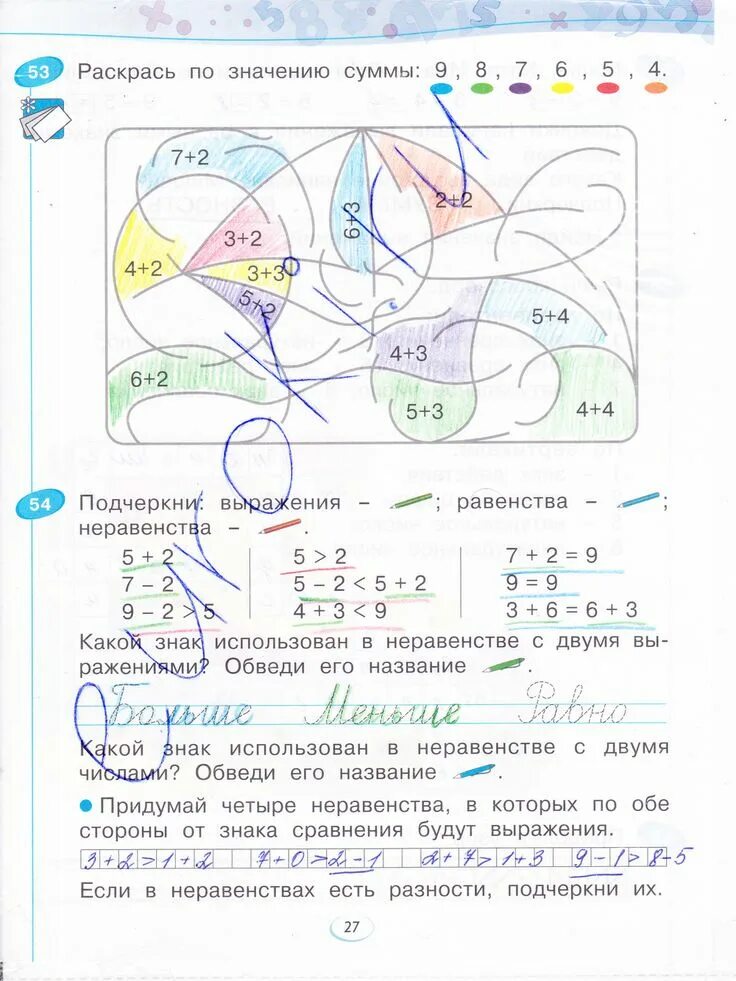 53 Раскрась по значению суммы: 9, 8, 7, 6, 5, 4.
7+2
2+2
6+3
3+2
4+2
3+3
5+2
5+4
4+3
6+2
5+3
4+4
54 Подчеркни: выражения – ; равенства – ;
неравенства – .
5 + 2 5 > 2 7 + 2 = 9
7 – 2 5 – 2 < 5 + 2 9 = 9
9 – 2 > 5 4 + 3 < 9 3 + 6 = 6 + 3
Какой знак использован в неравенстве с двумя вы-
ражениями? Обведи его название .
Больше Меньше Равно
Какой знак использован в неравенстве с двумя
числами? Обведи его название .
Придумай четыре неравенства, в которых по обе
стороны от знака сравнения будут выражения.
3+2>1+2 7+0>2-1 2+7>1+3 9-1>8-5
Если в неравенствах есть разности, подчеркни их.
27